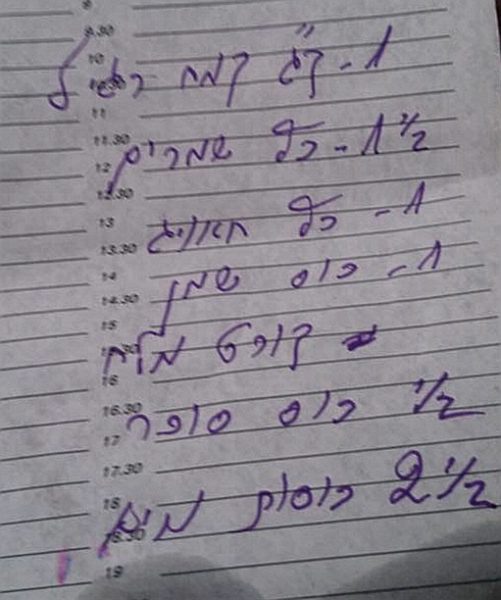 1 - ק"ג קמח רגיל
1 1/2 - כף שמרים
1 - כף
1 - כוס שמן
קורט מלח
1/2 כוס סוכר
2 1/2 כוסות מים
9.30
10
11
11.30
12
12.30
13
13.30
14
14.30
15
16
16.30
17
17.30
18
18.30
19